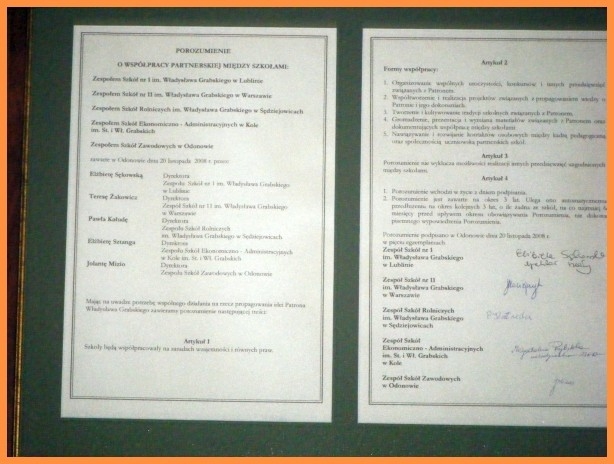 POROZUMIENIE
O WSPÓŁPRACY PARTNERSKIEJ MIĘDZY SZKOŁAMI:
Zespołem Szkół nr I im. Władysława Grabskiego w Lublinie
Zespołem Szkół nr II im. Władysława Grabskiego w Warszawie
Zespołem Szkół Rolniczych im. Władysława Grabskiego w Sędziejowicach
Zespołem Szkół Ekonomiczno - Administracyjnych w Kole
im. St. i Wł. Grabskich
Zespołem Szkół Zawodowych w Odonowie
zawarte w Odonowie dnia 20 listopada 2008 r. przez:
Elżbietę Sękowską Dyrektora
Zespołu Szkół nr 1 im. Władysława Grabskiego
w Lublinie
Teresę Żukowicz Dyrektora
Zespołu Szkół nr 11 im. Władysława Grabskiego
w Warszawie
Pawła Dyrektora
Zespołu Szkół Rolniczych
im. Władysława Grabskiego w Sędziejowicach
Elżbietę Dyrektora
Zespołu Szkół Ekonomiczno - Administracyjnych
w Kole im. St. i Wł. Grabskich
Jolantę Mizio Dyrektora
Zespołu Szkół Zawodowych w Odonowie
Mając na uwadze potrzebę wspólnego działania na rzecz propagowania idei Patrona
Władysława Grabskiego zawieramy porozumienie następującej treści:
Artykuł 1
Szkoły będą współpracowały na zasadach wzajemności i równych praw.
Artykuł 2
Formy współpracy:
1. Organizowanie wspólnych uroczystości, konkursów i innych przedsięwzięć
związanych z Patronem.
2. Współtworzenie i realizacja projektów związanych z propagowaniem wiedzy o
Patronie i jego dokonaniach.
3. Tworzenie i kultywowanie tradycji szkolnych związanych z Patronem.
4. Gromadzenie, prezentacja i wymiana materiałów związanych z Patronem oraz
dokumentujących współpracę między szkołami.
5. Nawiązywanie i rozwijanie kontaktów osobowych między kadrą pedagogiczną
oraz społecznością uczniowską partnerskich szkół.
Artykuł 3
Porozumienie nie wyklucza możliwości realizacji innych przedsięwzięć
między szkołami.
Artykuł 4
1. Porozumienie wchodzi w życie z dniem podpisania.
2. Porozumienie jest zawarte na okres 3 lat. Ulega ono automatycznemu
przedłużeniu na okres kolejnych 3 lat, o ile żadna ze szkół, na co najmniej
miesięcy przed upływem okresu obowiązywania Porozumienia, nie dokona
pisemnego wypowiedzenia Porozumienia.
Porozumienie podpisano w Odonowie dnia 20 listopada 2008 r.
w pięciu egzemplarzach
Zespół Szkół nr 1
im. Władysława Grabskiego
w Lublinie
Elżbieta
Zespół Szkół nr II
im. Władysława Grabskiego
w Warszawie
Zespół Szkół Rolniczych
im. Władysława Grabskiego
w Sędziejowicach
Zespół Szkół
Ekonomiczno - Administracyjnych
im. St. i Wł. Grabskich
w Kole
Zespół Szkół Zawodowych
w Odonowie